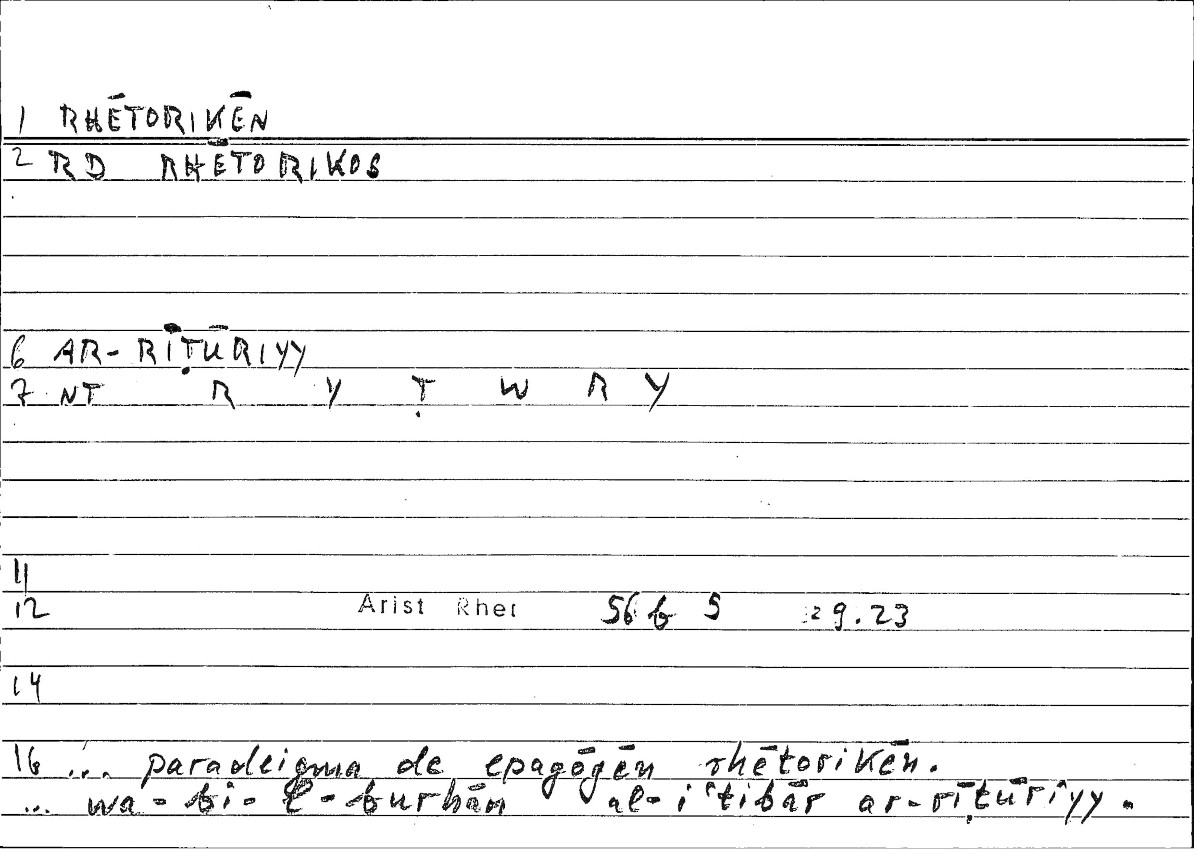 1 RHĒTORIKĒN
2 RD RHĒTORIKOS
6 AR-RĪṬŪRIYY
7 NT R Y Ṭ W R Y
11
12 Arist Rhet 56 b 5 29.23
14
16 ... paradeigma de epagōgēn rhētorikēn.
... wa-bi-l-burhān al-iʿtibār ar-rīṭūriyy.